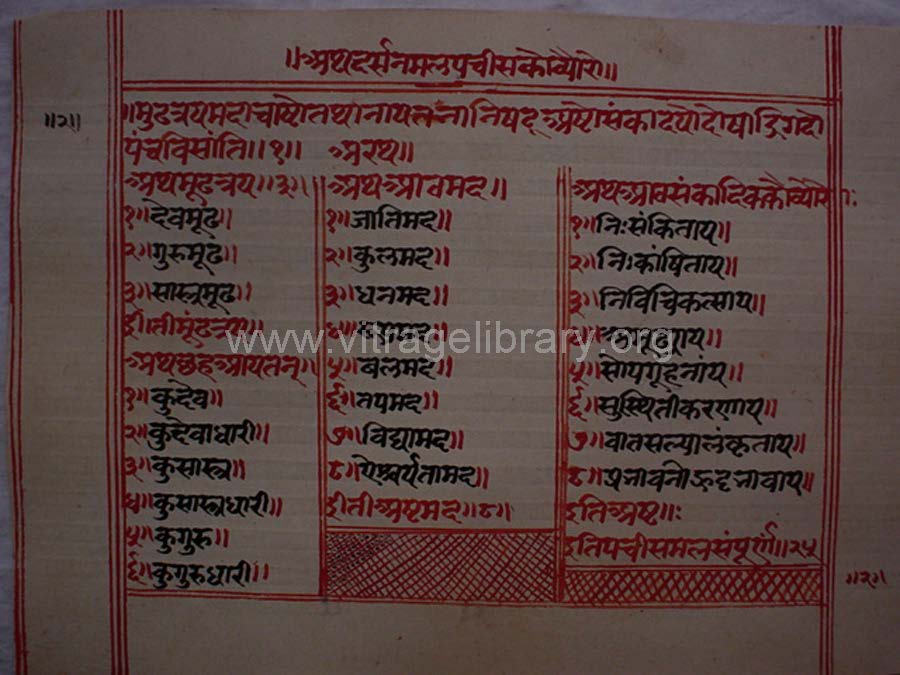 ॥अथदर्सनमलपचीसकोव्यौरो॥
॥२॥
॥मुढत्रयमदाचाष्टोतथानायतनानिषद्अष्टोसंकादयोदोषाद्रिगदो
पंचविसांति॥१॥ अरथ॥
अथमूढत्रय॥३॥
१॥देवमूढ॥
२॥गुरुमूढ॥
३॥सास्त्रमूढ॥
ईतीमूंढत्रय॥
अथछहआयतन॥
१॥कुदेव॥
२॥कुदेवाधारी॥
३॥कुसास्त्र॥
४॥कुसास्त्रधारी॥
५॥कुगुरु॥
६॥कुगुरुधारी॥
अथआठमद॥
१॥जातिमद॥
२॥कुलमद॥
३॥धनमद॥
५॥बलमद॥
६॥तपमद॥
७॥विद्यामद॥
८॥ऐश्वर्यतामद॥
ईतीअष्टमद॥८॥
अथआठसंकादिककौव्यौरो:
१॥निःसंकिताय॥
२॥निःकांषिताय॥
३॥निर्विचिकत्साय॥
५॥सोपगूहनांय॥
६॥सुस्थितीकरणाय॥
७॥वातसल्यालंकृताय॥
इतिअष्ट॥:
इतिपचीसमलसंपूर्ण॥२५
॥२॥
www.vitragelibrary.org